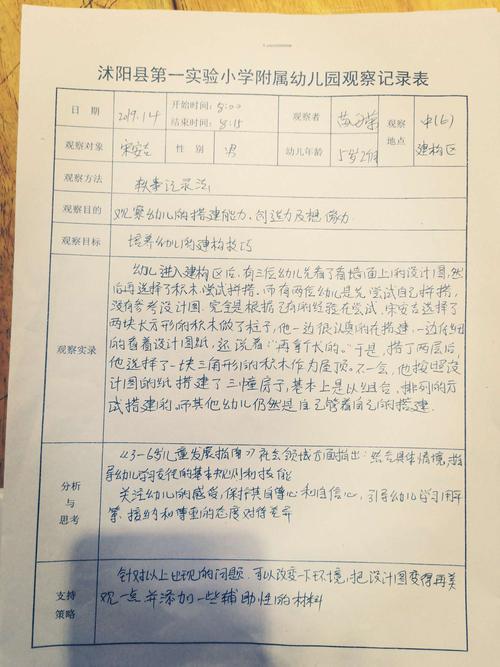 沭阳县第一实验小学附属幼儿园观察记录表
日期 2019.1.4 开始时间：8:00 结束时间：8:15 观察者 观察地点 中(6) 建构区
观察对象 宋安吉 性别 男 幼儿年龄 5岁2个月
观察方法 轶事记录法
观察目的 观察幼儿的搭建能力、创造力及想像力
观察目标 培养幼儿的建构技巧
观察实录
幼儿进入建构区后，有三位幼儿先看了看墙面上的设计图,然
后再选择了积木,尝试拼搭。而有两位幼儿是先尝试自己拼搭，
没有参考设计图.完全是根据已有的经验在尝试.宋安吉选择了
两块长方形的积木做了柱子,他一边很认真的在搭建.一边仔细
的看着设计图纸,还说着："再拿个长的。"于是,搭了两层后,
他选择了一块三角形的积木作为屋顶。不一会,他按照设
计图的纸搭建了三幢房子,基本上是以组合、排列的方
式搭建的.而其他幼儿仍然是自己管着自己的搭建.
分析与思考
《3-6岁儿童发展指南》社会领域方面指出：结合具体情境,指
导幼儿学习交往的基本规则和技能
关注幼儿的感受,保护其自尊心和自信心,引导幼儿学习用平
等、接纳和尊重的态度对待差异
支持策略
针对以上出现的问题.可以改变一下环境,把设计图变得再美
观一点并添加一些辅助性的材料